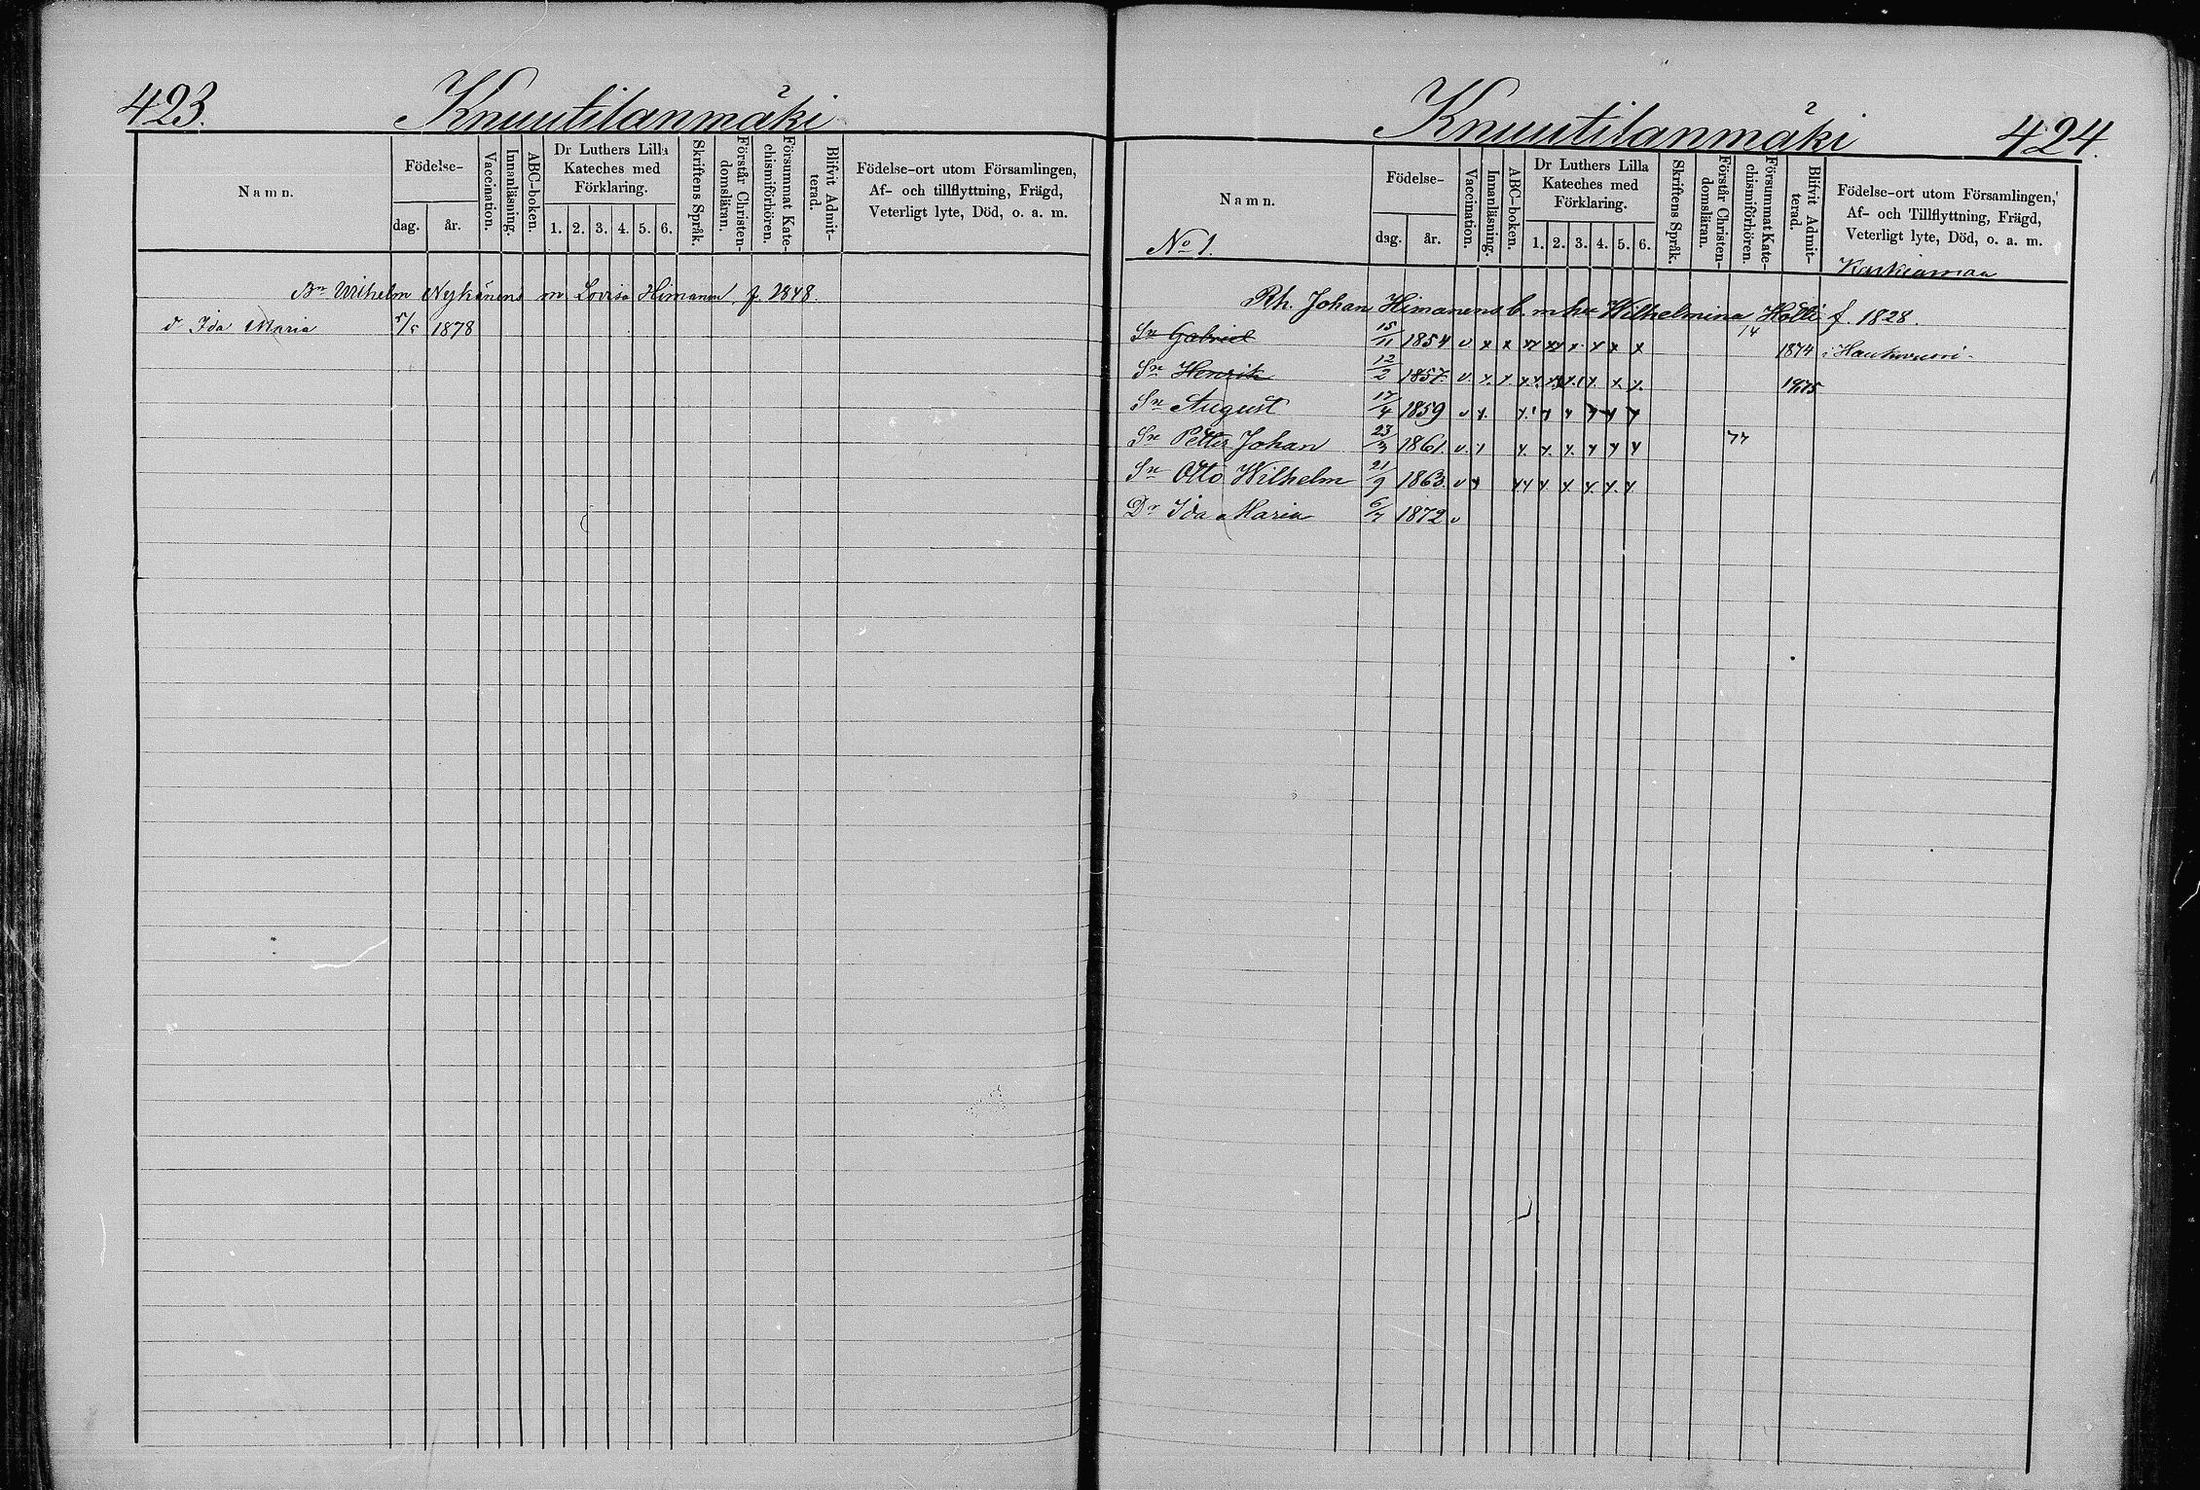 423. Knuutilanmäki
Namn.
Födelse-
dag. år.
Vaccination.
Innanläsning.
ABC-boken.
Dr Luthers Lilla
Kateches med
Förklaring.
1. 2. 3. 4. 5. 6.
Skriftens Språk.
Förstår Christen-
domsläran.
Försummat Kate-
chismiförhören.
Blifvit Admit-
terad.
Födelse-ort utom Församlingen,
Af- och tillflyttning, Frägd,
Veterligt lyte, Död, o. a. m.
Bn Wilhelm Nykänens m Lovisa Himanen f. 1848.
d Ida Maria 5/5 1878
Knuutilanmäki 424.
Namn.
No 1.
Födelse-
dag. år.
Vaccination.
Innanläsning.
ABC-boken.
Dr Luthers Lilla
Kateches med
Förklaring.
1. 2. 3. 4. 5. 6.
Skriftens Språk.
Förstår Christen-
domsläran.
Försummat Kate-
chismiförhören.
Blifvit Admit-
terad.
Födelse-ort utom Församlingen,
Af- och Tillflyttning, Frägd,
Veterligt lyte, Död, o. a. m.
Rh. Johan Himanens b. m hu Wilhelmina Hölli f. 1828.
Sn Gabriel 15/11 1854 v x x xx xx x x x x 14 1874 i Hautavuori
Sn Henrik 12/2 1857. v. x. x. x x x x x x 1875
Sn August 17/4 1859 v x. x x x x x x
Sn Petter Johan 23/3 1861. v. x x. x. x. x x x 77
Sn Otto Wilhelm 21/9 1863. v x xx x x. x. x. x
Dr Ida Maria 6/7 1872 v